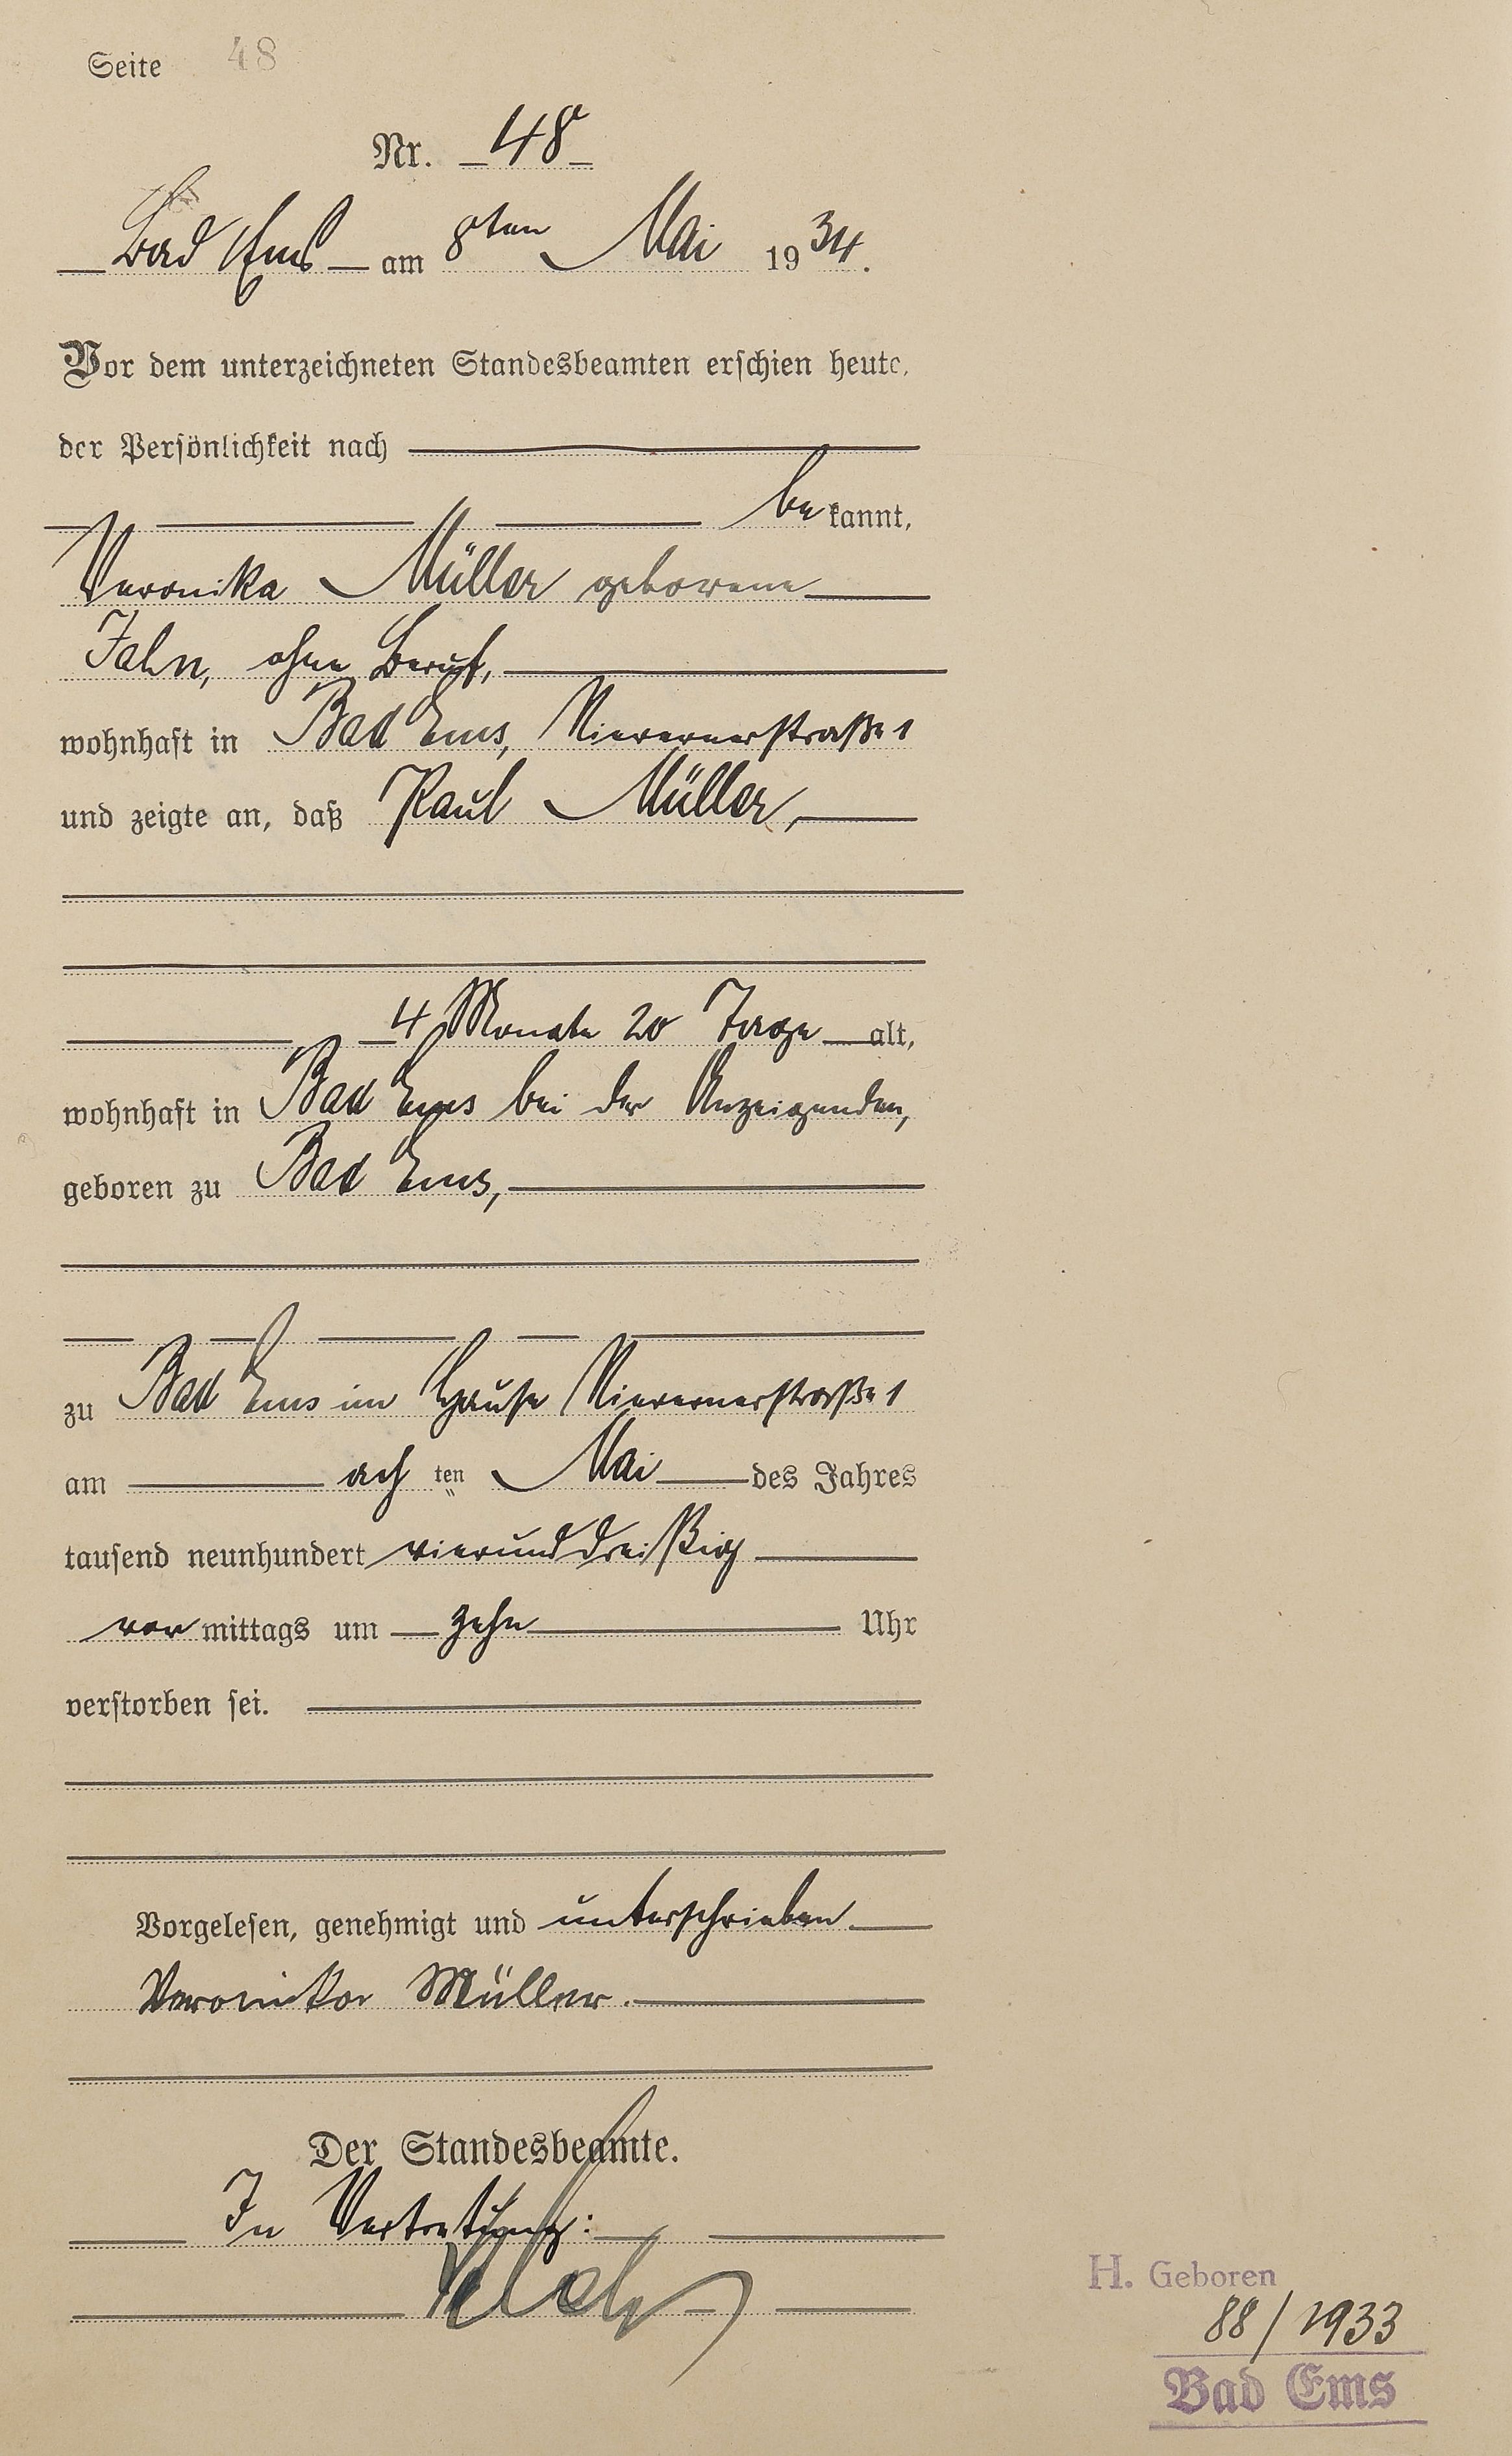 Seite 48
Nr. 48
Bad Ems am 8ten Mai 1934.
Vor dem unterzeichneten Standesbeamten erschien heute,
der Persönlichkeit nach
be kannt,
Veronika Müller geborene
Jahn, ohne Beruf,
wohnhaft in Bad Ems, Nievernerstraße 1
und zeigte an, daß Paul Müller,
4 Monate 20 Tage alt,
wohnhaft in Bad Ems bei der Anzeigenden,
geboren zu Bad Ems,
zu Bad Ems im Hause Nievernerstraße 1
am ach ten Mai des Jahres
tausend neunhundert vierunddreißig
vor mittags um zehn Uhr
verstorben sei.
Vorgelesen, genehmigt und unterschrieben.
Veronika Müller.
Der Standesbeamte.
In Vertretung:
H. Geboren
88/1933
Bad Ems